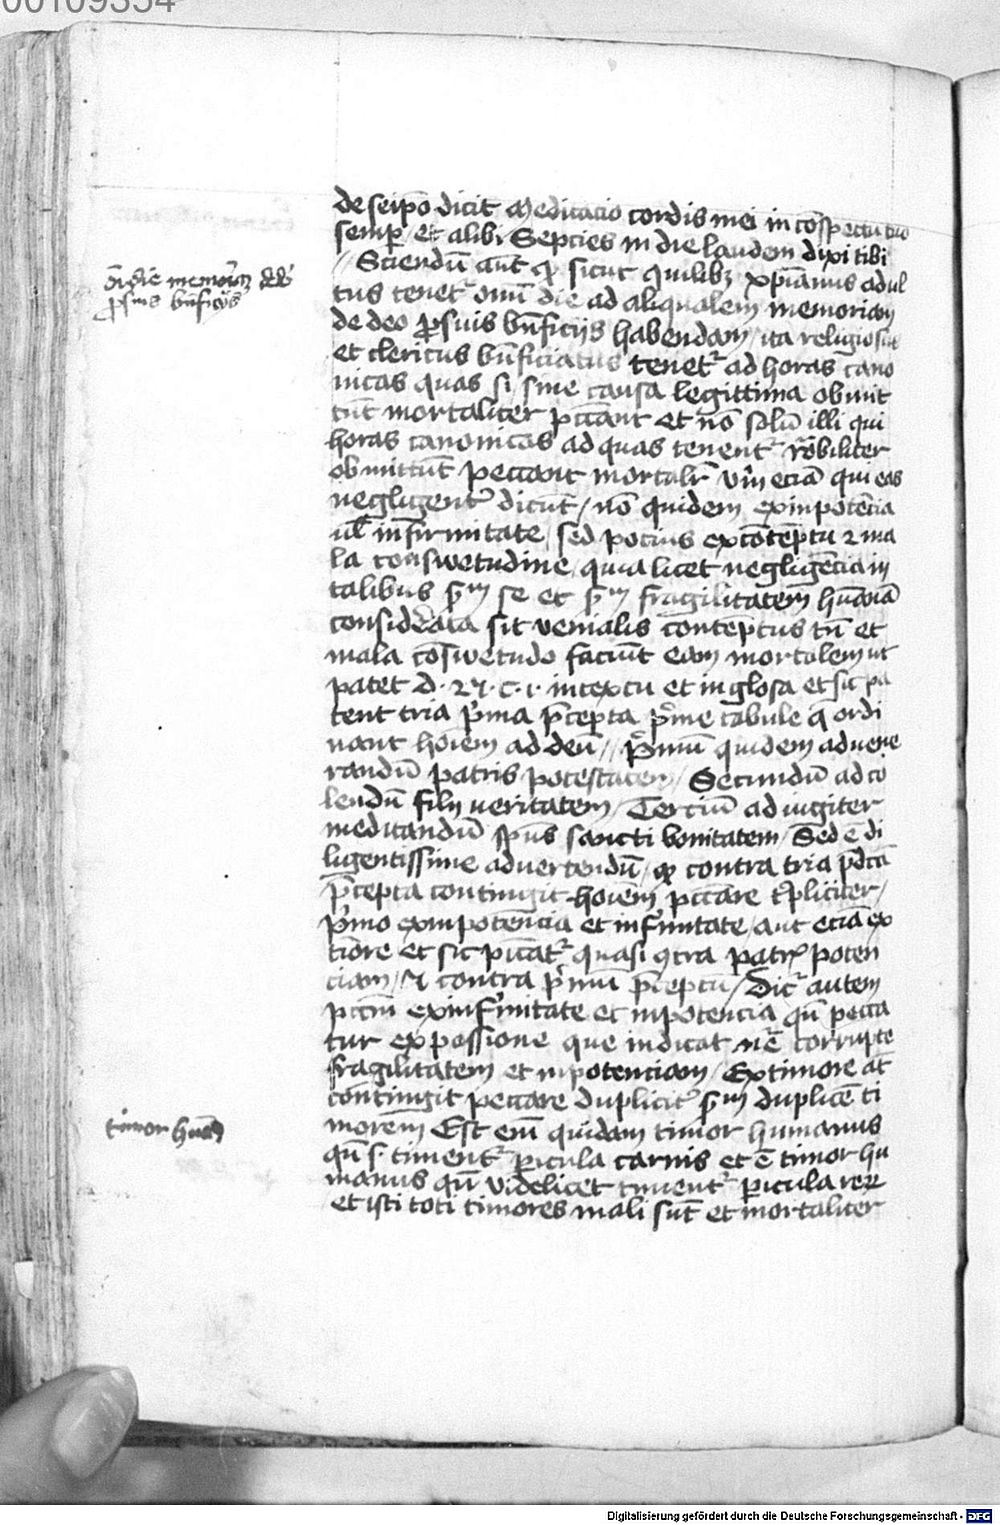 00109354
de seipō dicit Meditacio cordis mei in cōspectu tuo
semp̄ et alibi Sepcies in die laudem dixi tibi
Sciendū aūt ꝙ sicut quilibꝫ xp̄ianus adul
tus tenet᷑ omī die ad aliqualem memoriam
de deo ꝓ suis bn̄ficijs habendam / ita religiosus
et clericus bn̄ficiatus tenet᷑ ad horas cano
nicas quas si sine causa legittima obmit
tūt mortaliter pccānt et nō solū illi qui
horas canonicas ad quas tenent᷑ nōbiliter
obmittūt peccant mortalr̄ vm̄ eciā qui eas
negligent᷑ dicūt / nō quidem ex inpotēcia
ul̄ infirmitate / sed pocius ex cōtēptu ⁊ ma
la conswetudine / quia licet negligēcia in
talibus sm̄ se et sm̄ fragilitatem hūanā
considerata sit venialis contēptus tn̄ et
mala cōswetudo faciūt eam mortalem ut
patet d. 27. c. i. in textu et in glosa et sic pa
tent tria p̄ma p̄cepta p̄me tabule q̄ ordi
nant hoīem ad deū // P̄mū quidem ad vene
randū patris potestatem / Secundū ad co
lendū filij veritatem / Terciū ad iugiter
meditandū sp̄us sancti bonitatem / Sed ē di
ligentissime advertendū / ꝙ contra tria p̄dcā
p̄cepta contingit hoīem pccāre tp̄liciter /
p̄mo ex inpotēncia et infirmitate / aut eciā ex
tiōre et sic pccāt᷑ quasi ꝯtra patr̄ poten
ciam / ⁊ contra p̄mū p̄ceptū / Dic᷑ autem
pccm̄ ex infirmitate et inpotencia qn̄ pecca
tur ex passione que indicat nr̄e corrupte
fragilitatem et inpotenciam / Ex timore at̄
contingit peccare duplicit᷑ sm̄ duplicē ti
morem Est em̄ quidam timor humanus
qn̄ s. timent᷑ pericula carnis et ē timor hu
manus qn̄ videlicet timent᷑ pericula reꝝ
et isti toti timores mali sūt et mortaliter
oī die memoria de deo
ꝓ suis bn̄ficijs
timor huān9
Digitalisierung gefördert durch die Deutsche Forschungsgemeinschaft - DFG